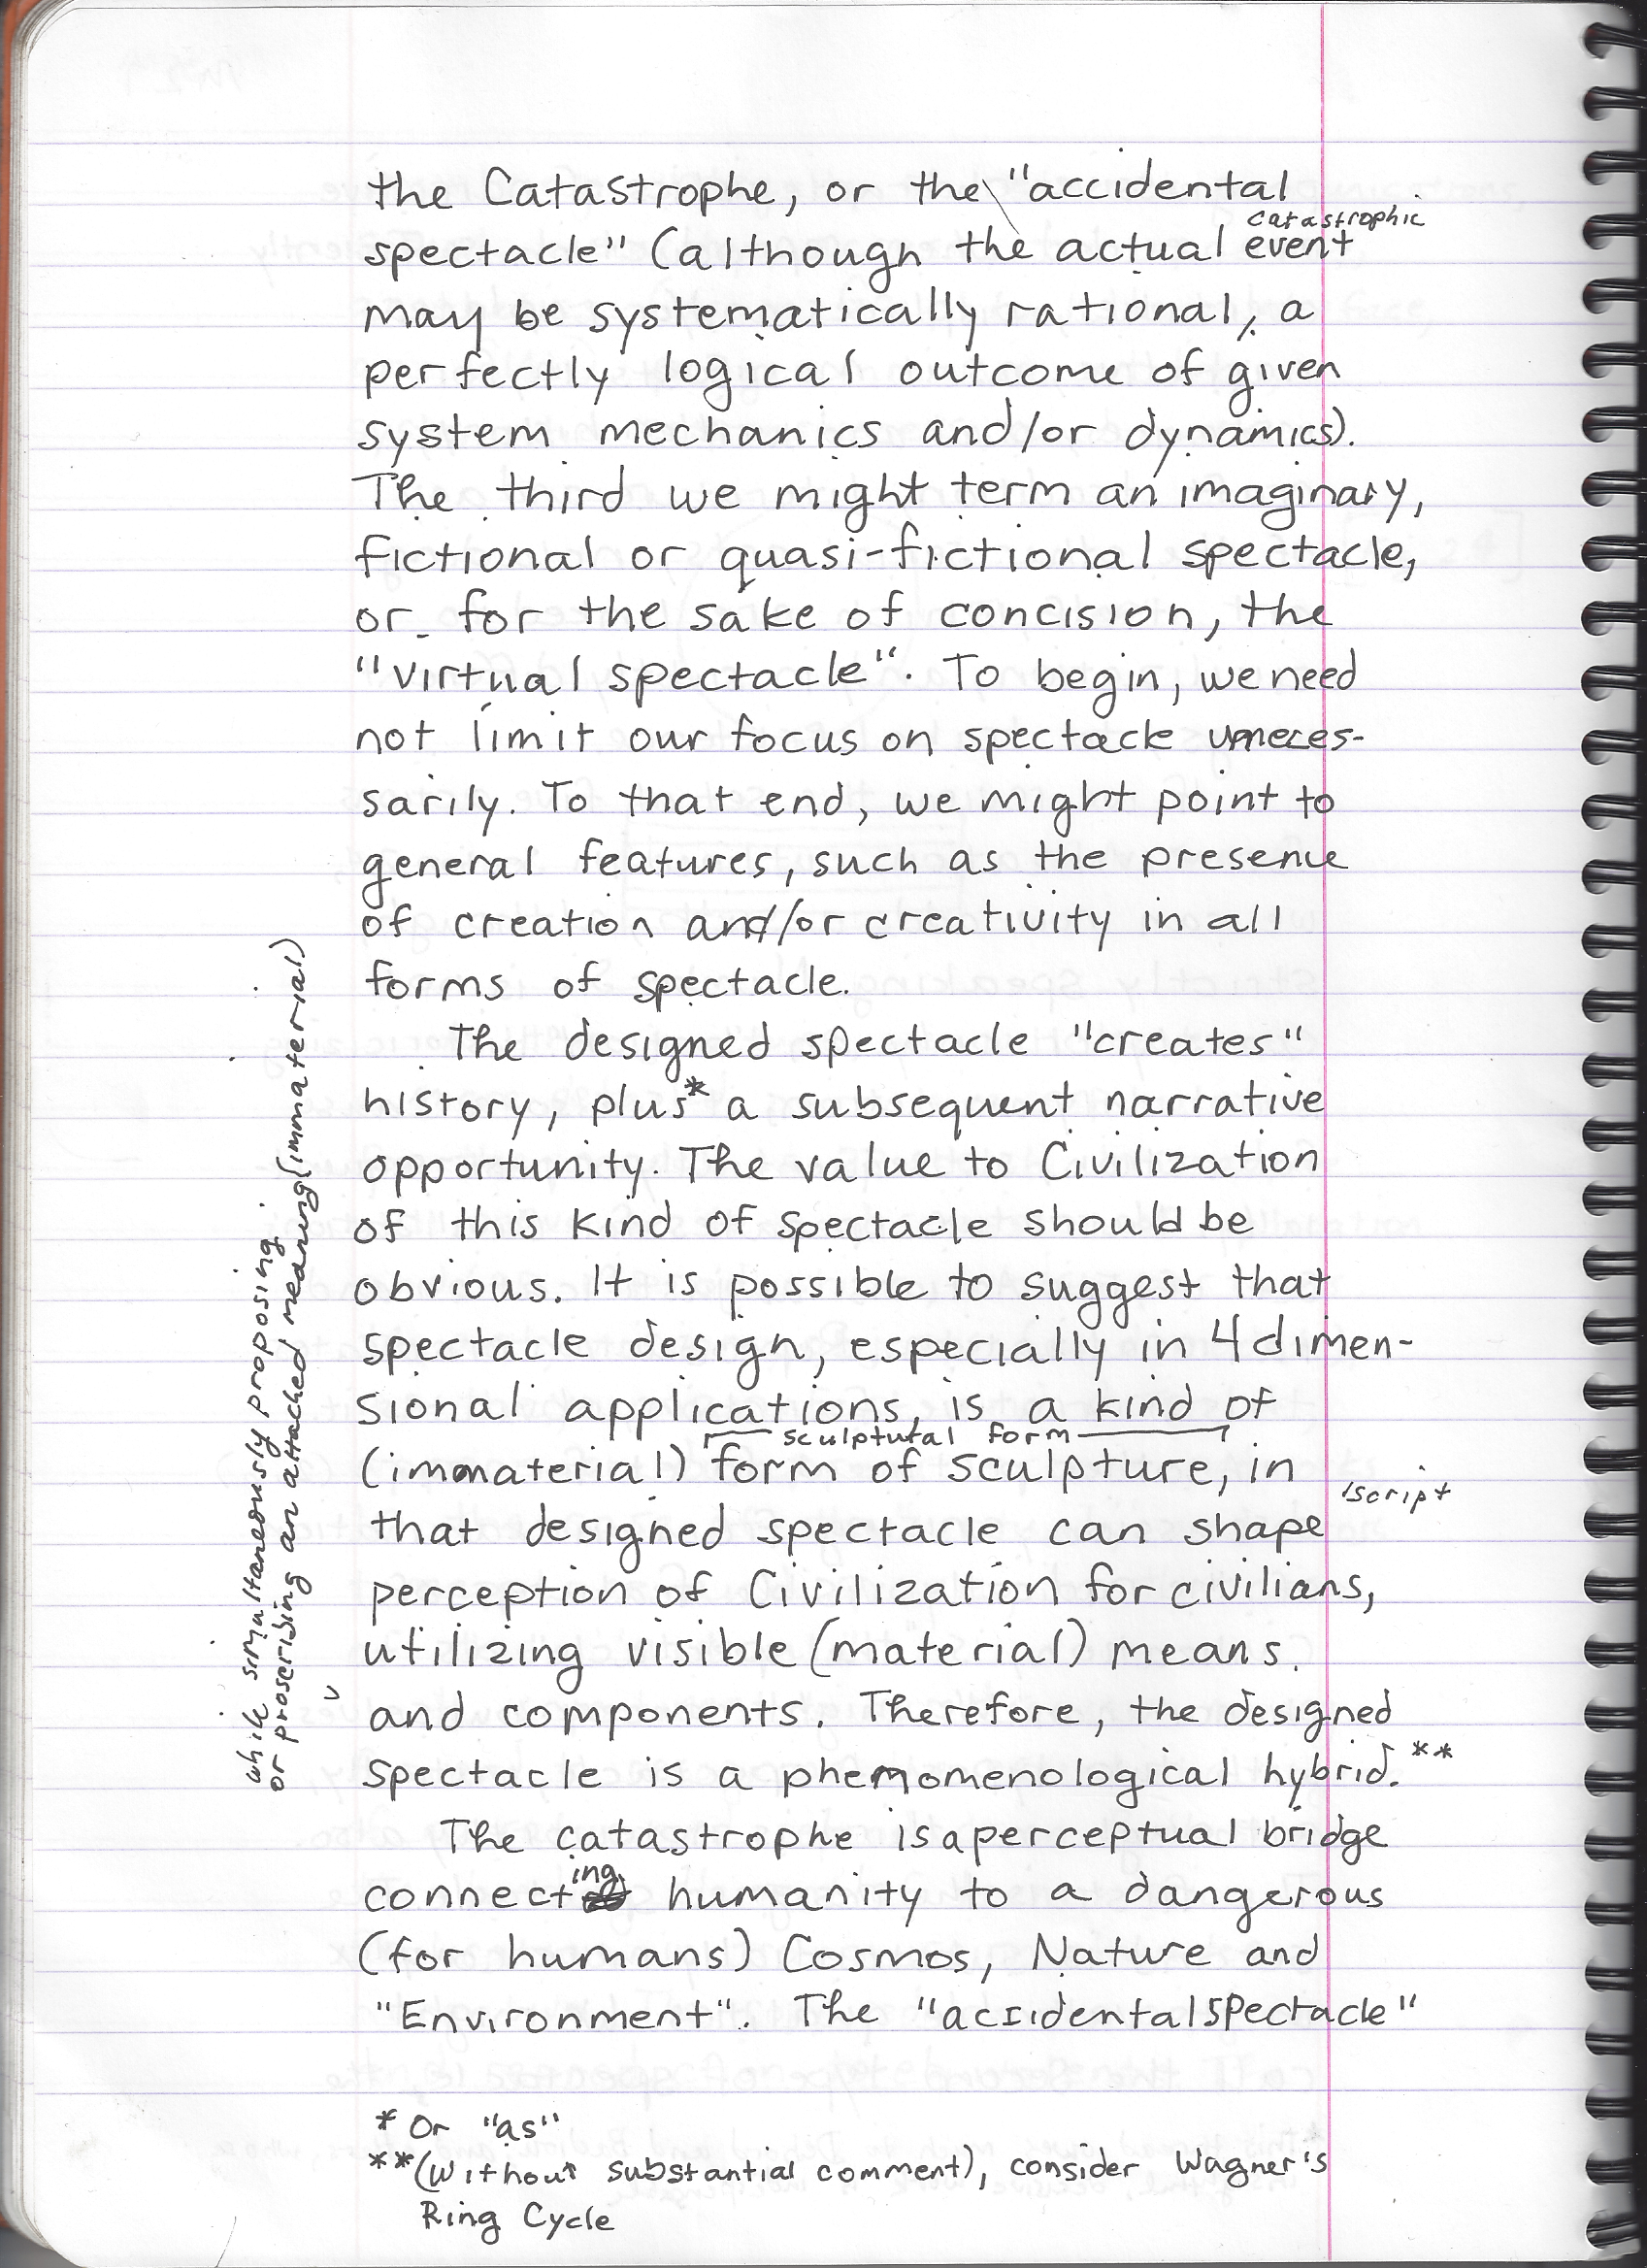 the Catastrophe, or the "accidental
catastrophic
spectacle" (although the actual event
may be systematically rational, a
perfectly logical outcome of given
system mechanics and/or dynamics).
The third we might term an imaginary,
fictional or quasi-fictional spectacle,
or for the sake of concision, the
"virtual spectacle". To begin, we need
not limit our focus on spectacle unneces-
sarily. To that end, we might point to
general features, such as the presence
of creation and/or creativity in all
forms of spectacle.
The designed spectacle "creates"
history, plus* a subsequent narrative
opportunity. The value to Civilization
of this kind of spectacle should be
obvious. It is possible to suggest that
spectacle design, especially in 4 dimen-
sional applications, is a kind of
sculptural form
(immaterial) form of sculpture, in
/script
that designed spectacle can shape
perception of Civilization for civilians,
utilizing visible (material) means
and components. Therefore, the designed
spectacle is a phenomenological hybrid.**
The catastrophe is a perceptual bridge
connecting humanity to a dangerous
(for humans) Cosmos, Nature and
"Environment". The "accidental spectacle"
* Or "as"
**(Without substantial comment), consider Wagner's
Ring Cycle
while simultaneously proposing
or proscribing an attached meaning (immaterial)